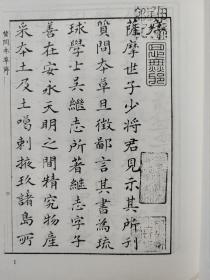 薩摩世子少將君見示其所刊
質問本草且徵鄙言其書為琉
球學士吳繼志所著繼志字子
善在安永天明之間精究物產
采本土及土噶剌掖玖諸島所
質問本草序
1